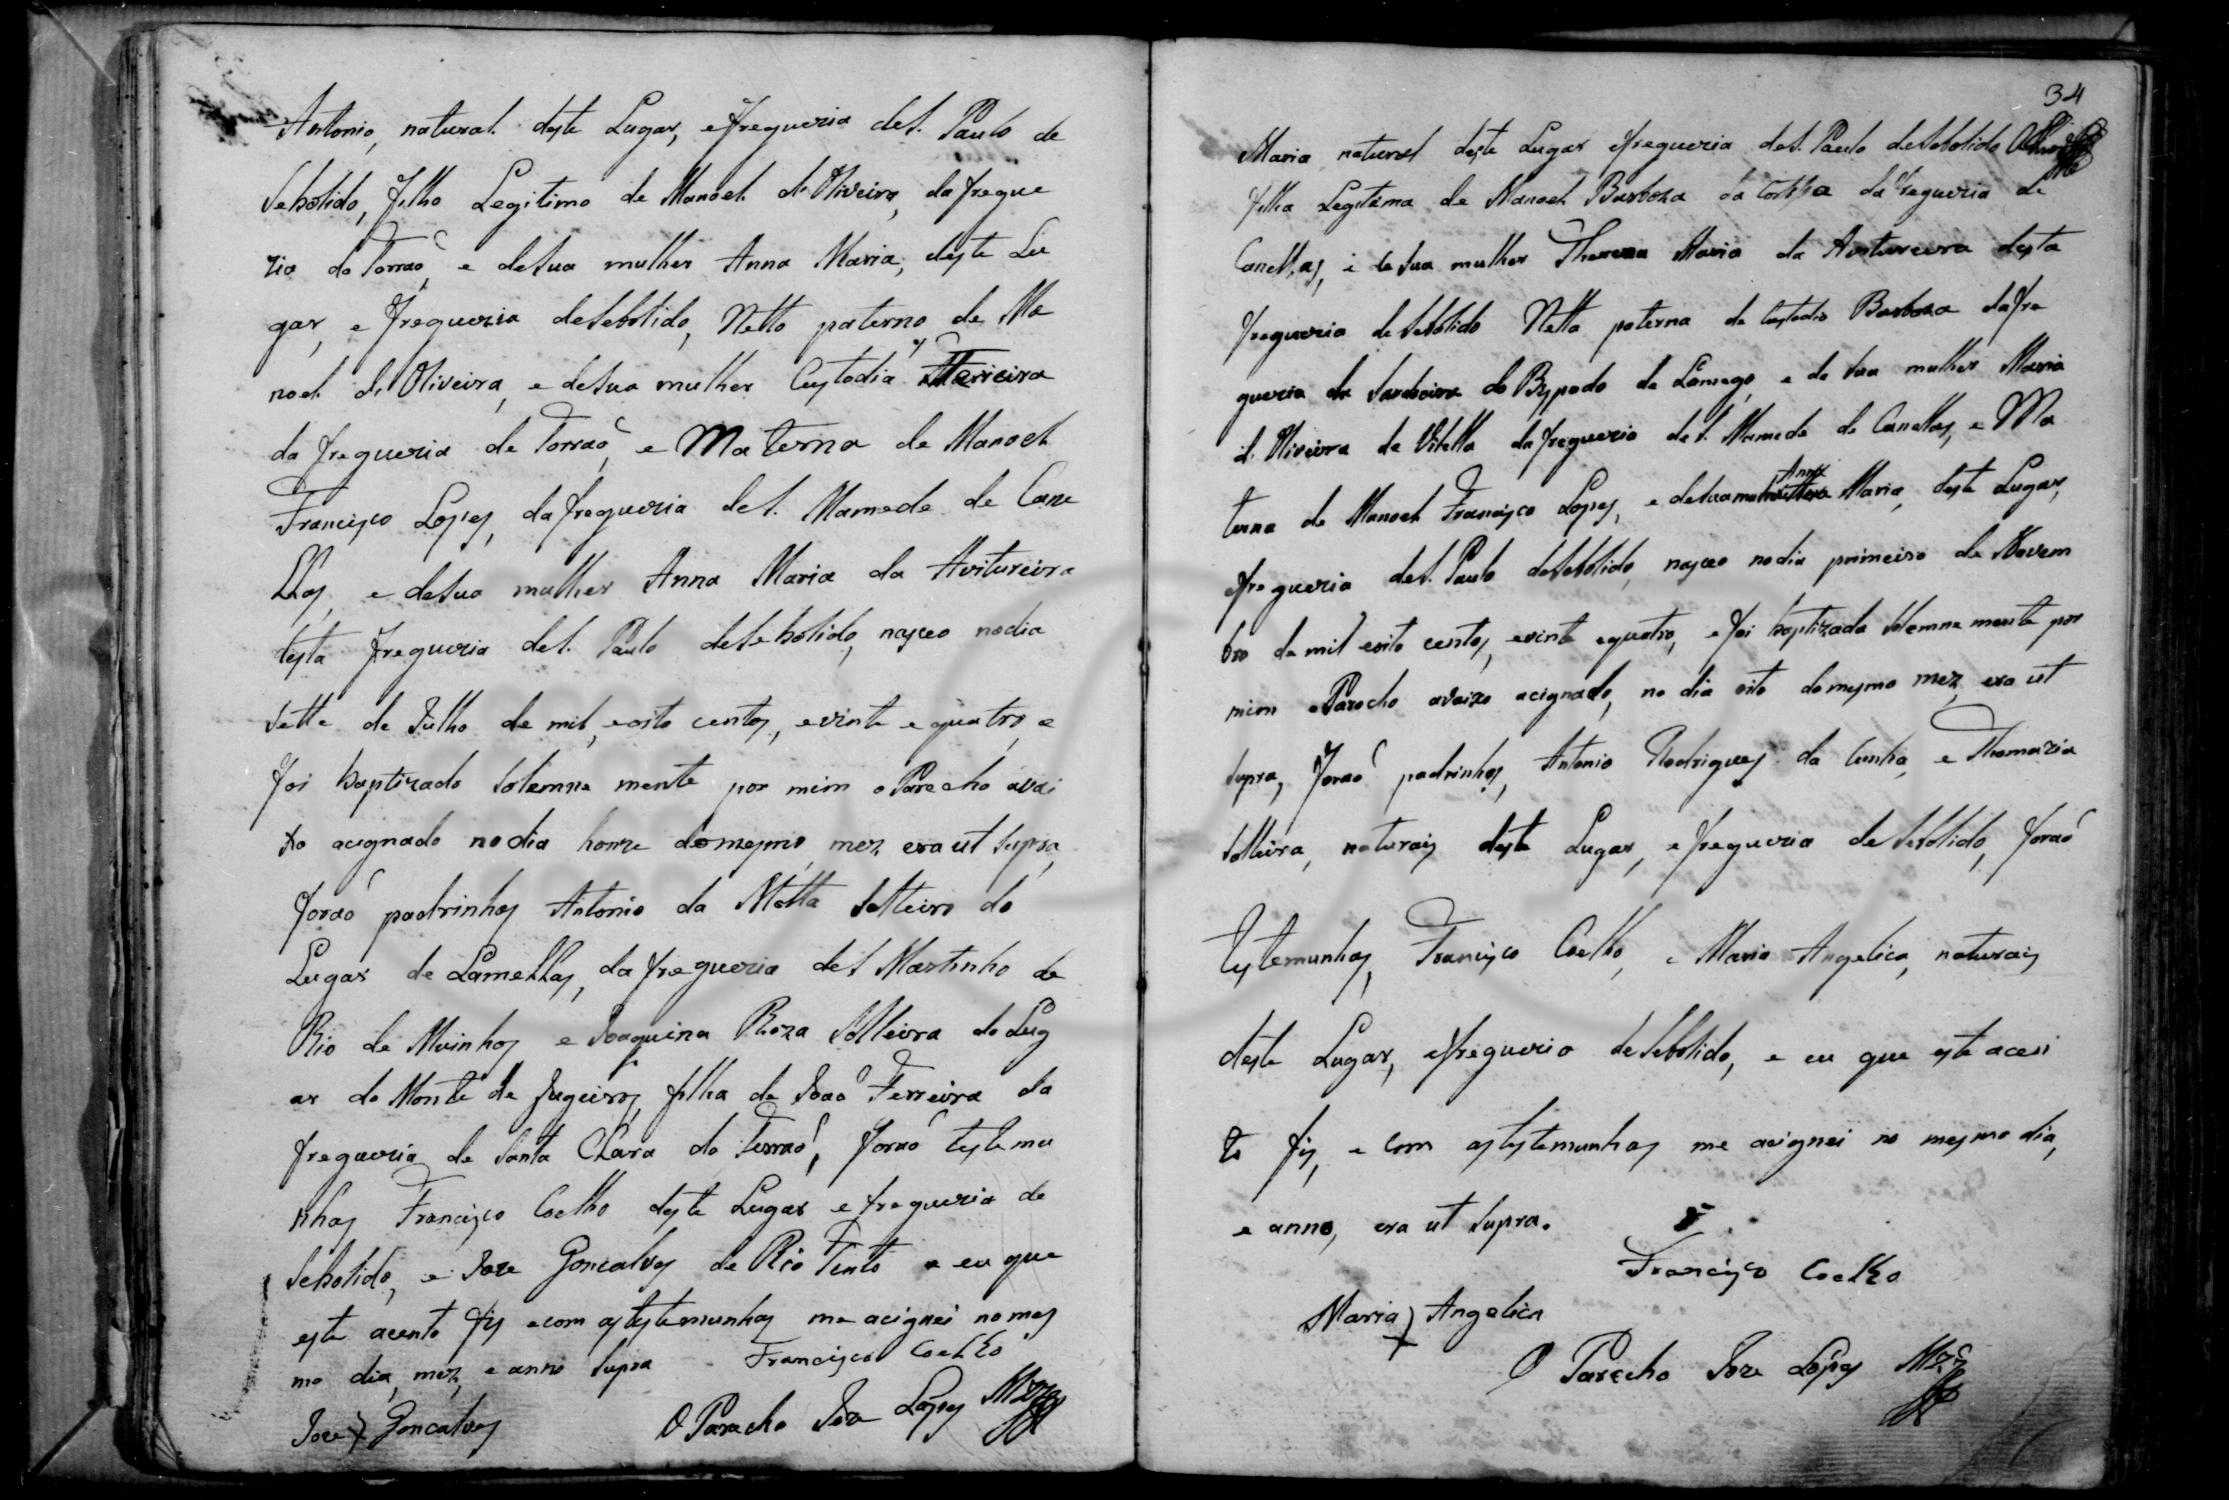 Antonio, natural deste Lugar, efregueria de S. Paulo de
Sebolido, filho Legitimo de Manoel d'Oliveira, da fregue
ria do Torraõ, e desua mulher Anna Maria, deste Lu
gar, e fregueria deSebolido, Netto paterno de Ma
noel d'Oliveira, e desua mulher Custodia Ferreira
da fregueria de Torraõ, e Materna de Manoel
Francisco Lopes, da fregueria de S. Mamede de Cane
llas, e desua mulher Anna Maria da Avitureira
desta fregueria de S. Paulo deSebolido, nasceo nodia
sette de Julho de mil, eoito centos, evinte e quatro, e
foi baptizado Solemne mente por mim oParocho avai
xo acignado nodia honze domesmo, mez era ut Supra,
foraõ padrinhos Antonio da Motta Solteiro do
Lugar de Lamellas, da fregueria de S Martinho de
Rio de Moinhos e Joaquina Roza Solteira do Lug
ar do Monte de Jugueiros, filha de Joaõ Ferreira da
fregueria de Santa Clara do Torraõ, foraõ testemu
nhas Francisco Coelho deste Lugar e fregueria de
Sebolido, e Joze Goncalves de Rio Tinto e eu que
este acento fis ecom astestemunhas me acignei nomes
mo dia, mez, e anno Supra Francisco Coelho
Joze Goncalves O Parocho Joze Lopes
34
Maria natural deste Lugar efregueria de S. Paulo deSebolido
filha Legitima de Manoel Barboza da Costa da fregueria de
Canellas, e de sua mulher Thereza Maria da Avitureira desta
fregueria deSebolido Netta paterna de Custodio Barboza dafre
gueria de Sardoeira do Bispado de Lamego, e de Sua mulher Maria
d'Oliveira de Vilella dafregueria de S. Mamede de Canellas, e Ma
terna de Manoel Francisco Lopes, e desuamulher Anna Maria, deste Lugar,
efregueria de S. Paulo deSebolido, nasceo nodia primeiro de Novem
bro de mil eoito centos, evinte equatro, e foi baptizada Solemne mente por
mim oParocho avaixo acignado, no dia oito domesmo mez, era ut
Supra, foraõ padrinhos, Antonio Rodrigues da Cunha, e Thomazia
Solteira, naturais deste Lugar, efregueria de Sebolido, foraõ
testemunhas, Francisco Coelho, e Maria Angelica, naturais
deste Lugar, efregueria deSebolido, e eu que este acen
to fis, e com astestemunhas me acignei no mesmo dia,
e anno, era ut Supra.
Francisco Coelho
Maria Angelica
O Parocho Joze Lopes